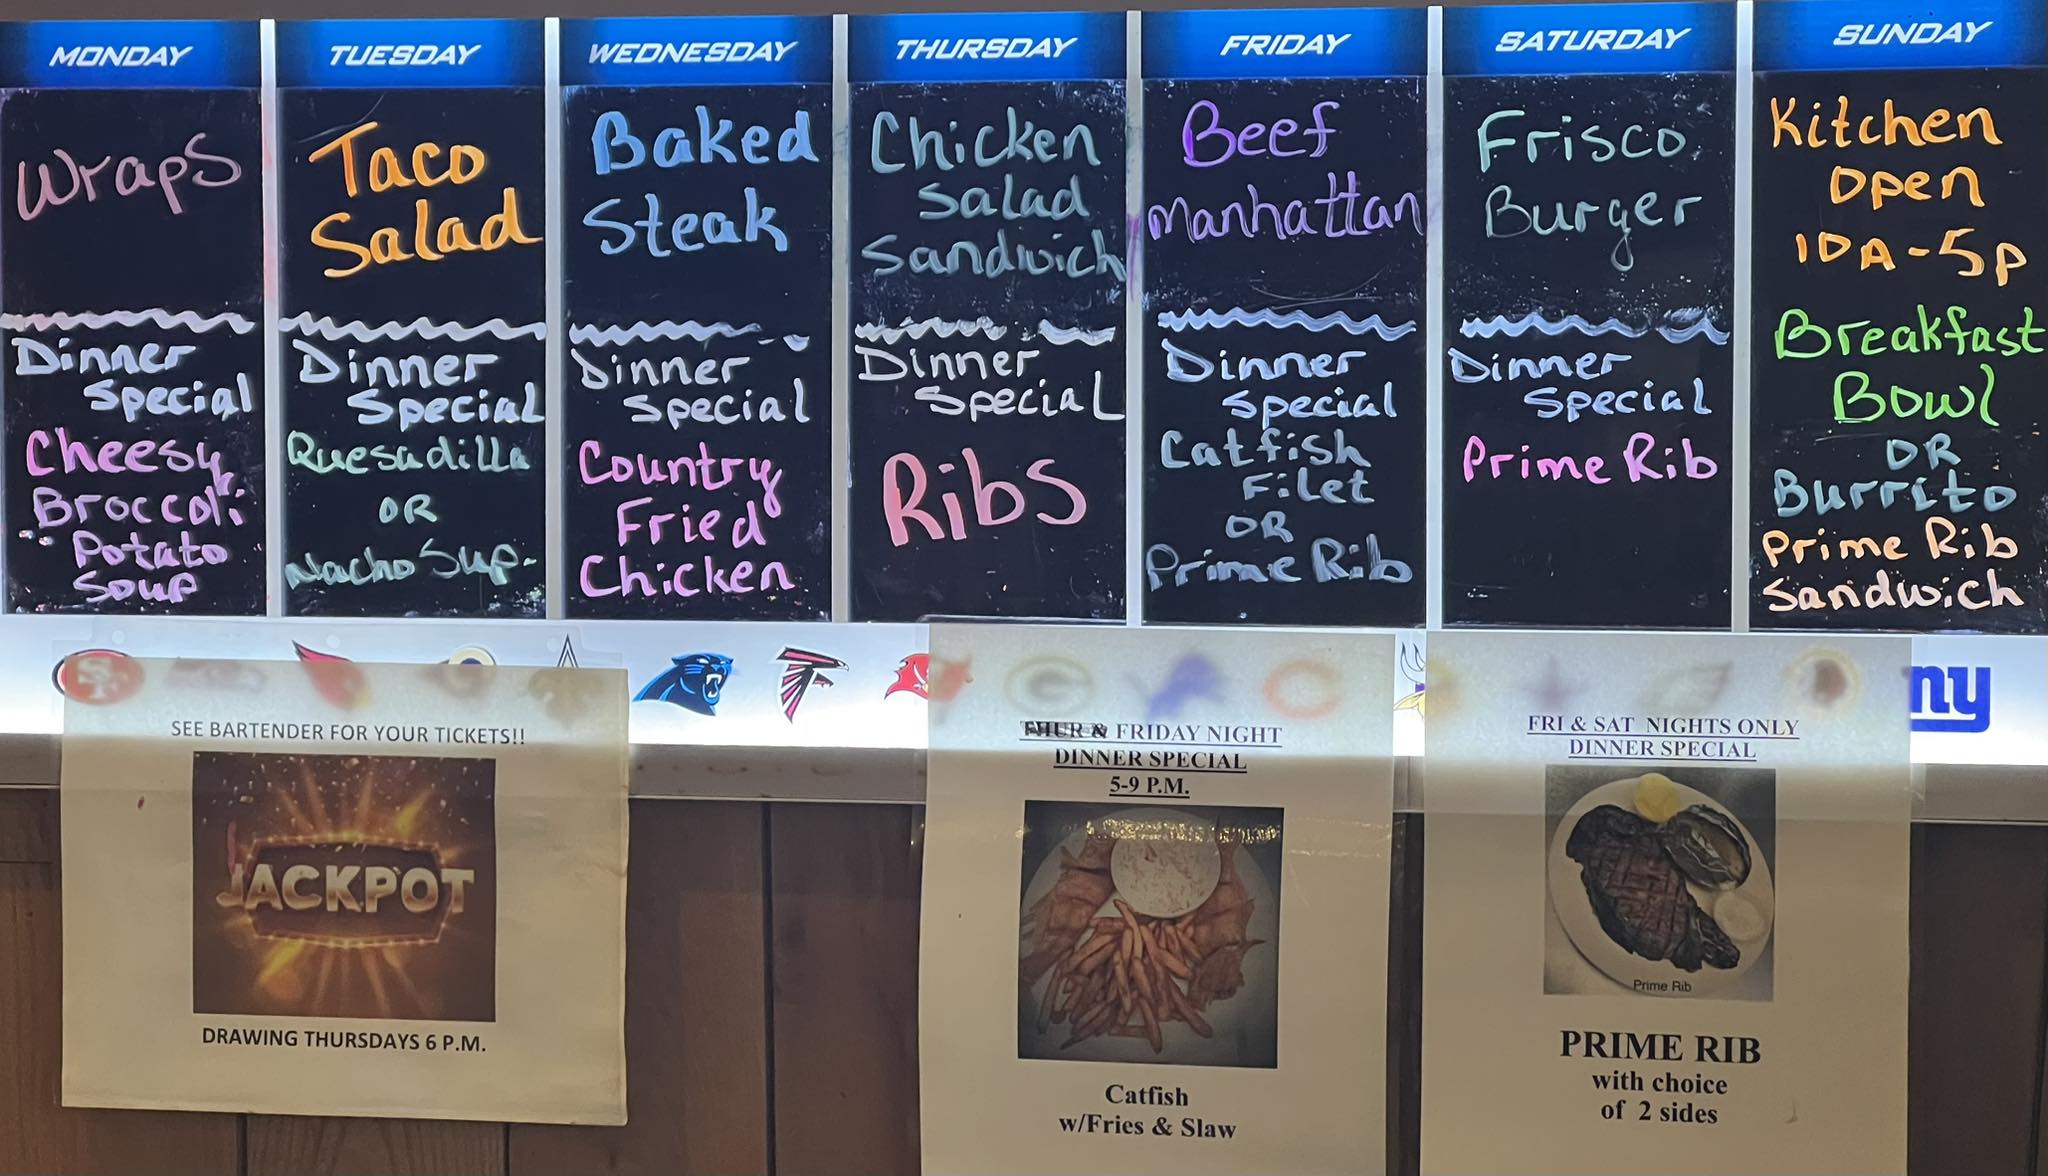 MONDAY
Wraps
Dinner
Special
Cheesy
Broccoli
Potato
Soup
TUESDAY
Taco
Salad
Dinner
Special
Quesadilla
OR
Nacho Sup.
WEDNESDAY
Baked
Steak
Dinner
Special
Country
Fried
Chicken
THURSDAY
Chicken
Salad
Sandwich
Dinner
Special
Ribs
FRIDAY
Beef
Manhattan
Dinner
Special
Catfish
Filet
OR
Prime Rib
SATURDAY
Frisco
Burger
Dinner
Special
Prime Rib
SUNDAY
Kitchen
Open
10A-5P
Breakfast
Bowl
OR
Burrito
Prime Rib
Sandwich
SF
G
C
ny
SEE BARTENDER FOR YOUR TICKETS!!
JACKPOT
DRAWING THURSDAYS 6 P.M.
THUR & FRIDAY NIGHT
DINNER SPECIAL
5-9 P.M.
Catfish
w/Fries & Slaw
FRI & SAT NIGHTS ONLY
DINNER SPECIAL
Prime Rib
PRIME RIB
with choice
of 2 sides